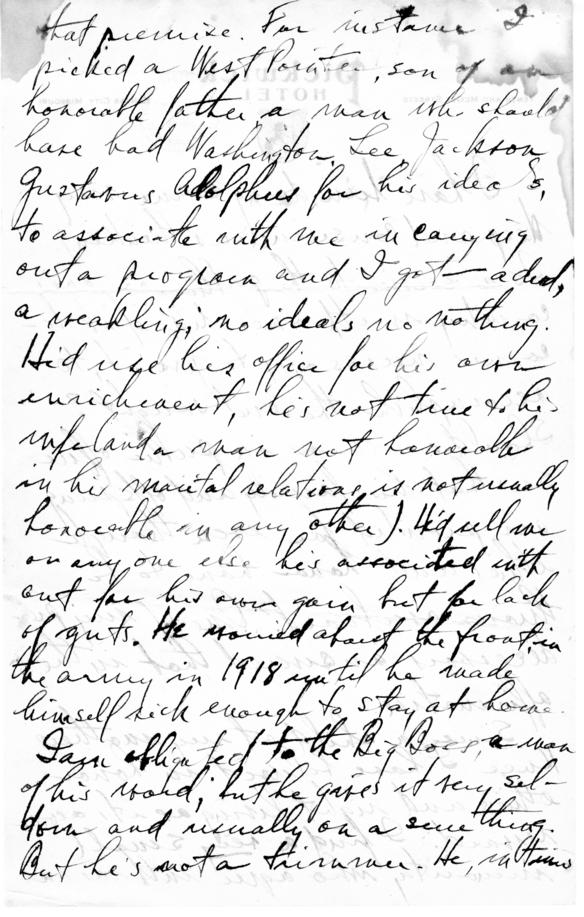 that premise. For instance I
picked a West Pointer, son of an
honorable father, a man who should
have had Washington, Lee, Jackson
Gustavus Adolphus for his ideals,
to associate with me in carrying
out a program and I got — a dud,
a weakling; no ideals no nothing.
He'd use his office for his own
enrichment, he's not true to his
wife (and a man not honorable
in his marital relations is not usually
honorable in any other). He'd sell me
or anyone else he's associated with
out for his own gain but for lack
of guts. He worried about the front in
the army in 1918 until he made
himself sick enough to stay at home.
I am obligated to the Big Boss, a man
of his word; but he gives it very sel-
dom and usually on a sure thing.
But he's not a trimmer. He, in times
HOTEL